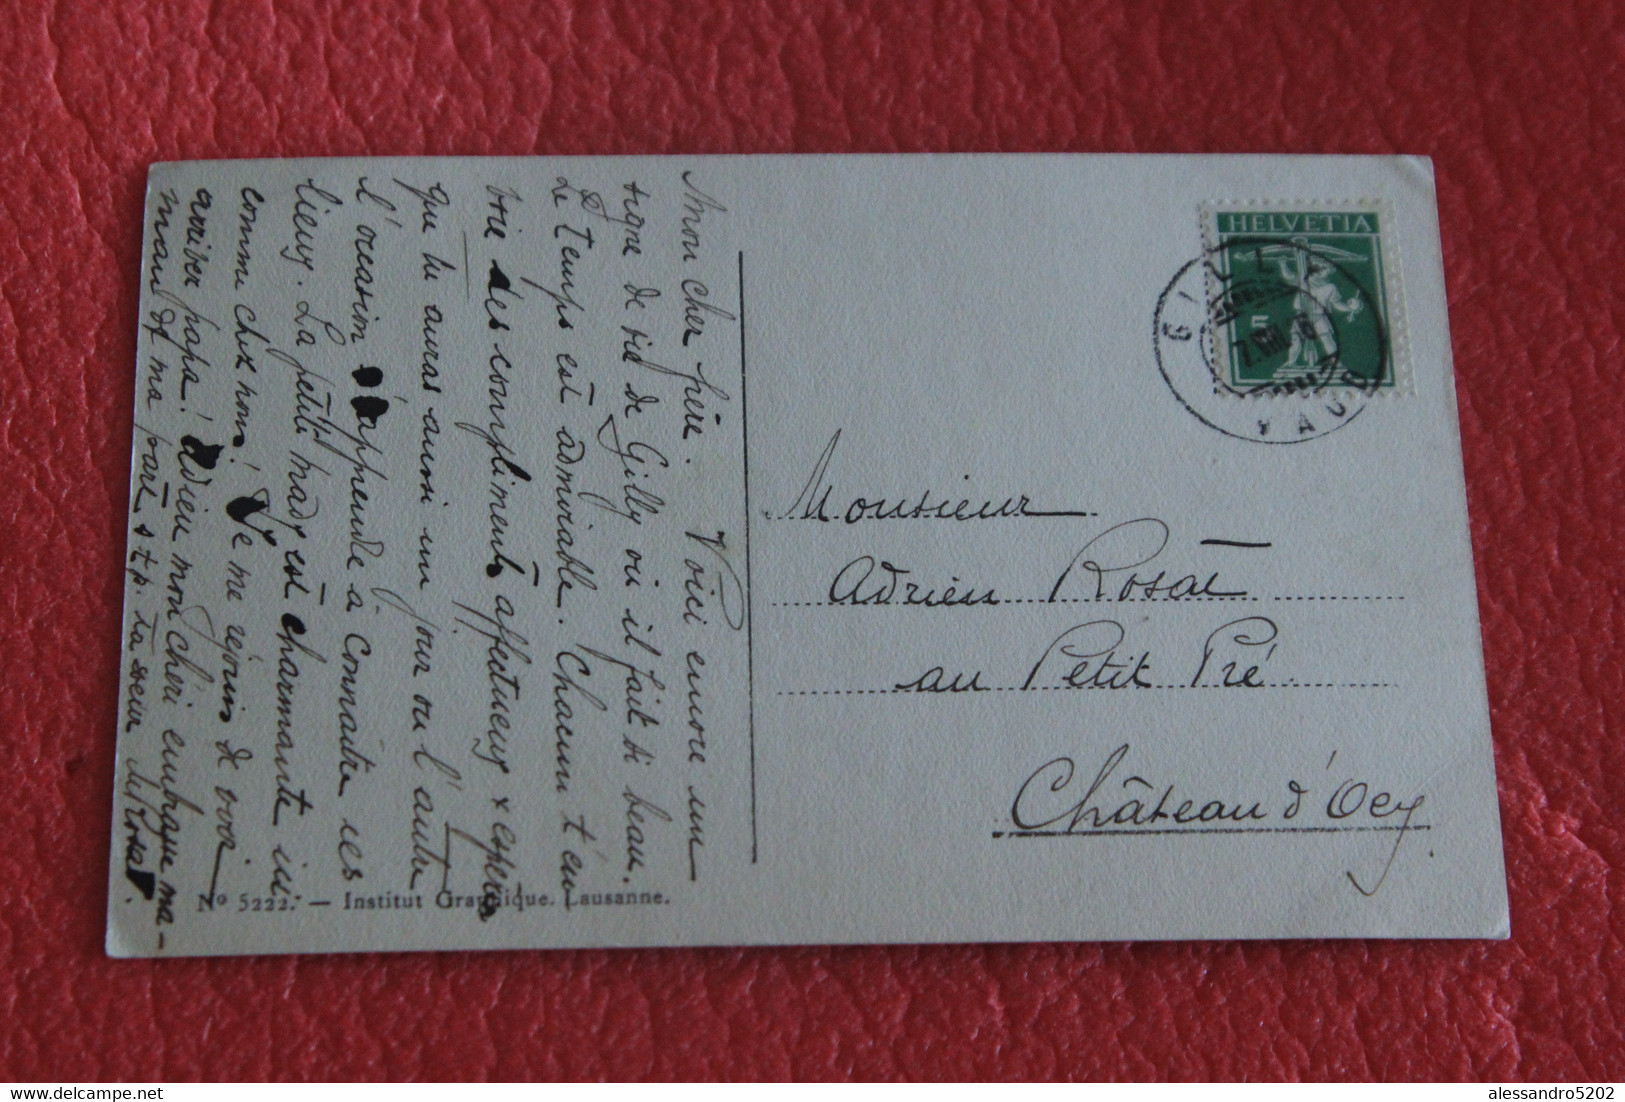 Mon cher frère. Voici encore un
signe de vie de Gilly où il fait si beau.
Le temps est admirable. Chacun t'en-
voie des compliments affectueux & espère
que tu auras aussi un jour ou l'autre
l'occasion d'apprendre à connaître ces
lieux. La petite Mady est charmante ici
comme chez nous! Je me réjouis de voir
arriver papa! Adieu mon chéri embrasse ma-
man de ma part s.t.p. ta soeur M Rosat.
HELVETIA
5
GILLY
VAUD
Monsieur
Adrien Rosat
au Petit Pré
Château d'Oex
Nº 5222. — Institut Graphique. Lausanne.
alessandro5202